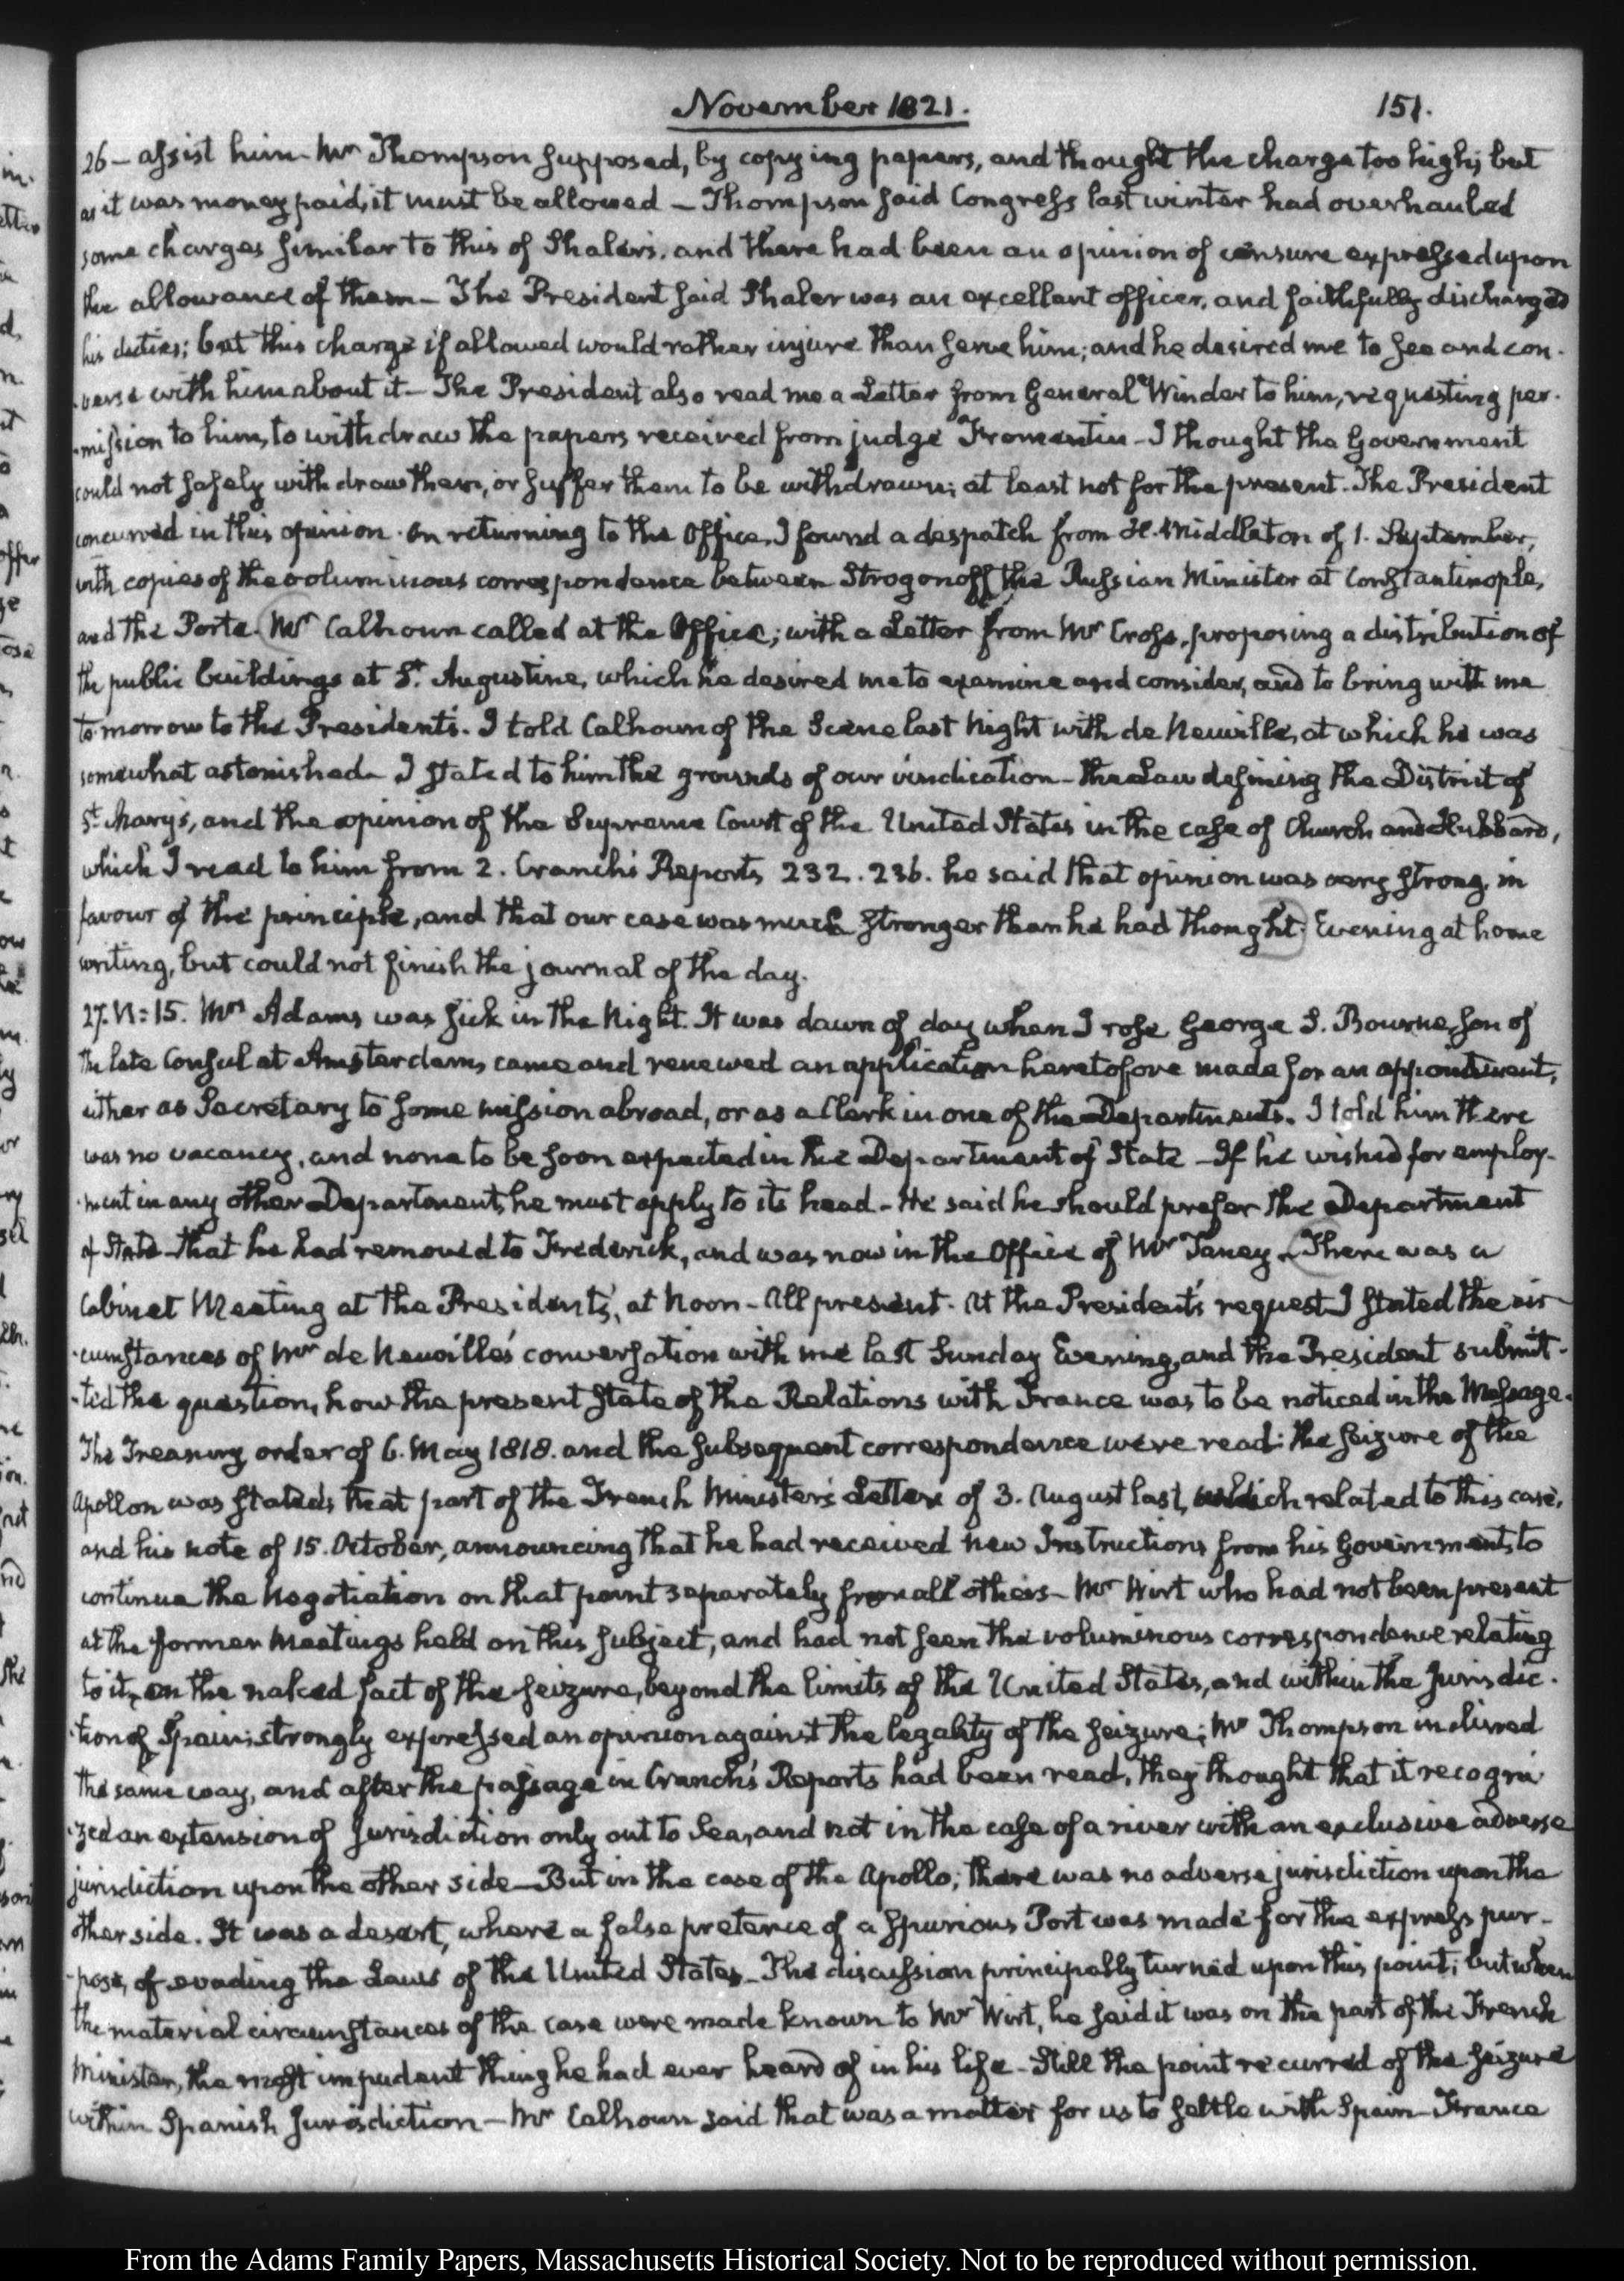 November 1821.
151.
26 — assist him. Mr Thompson supposed, by copying papers, and thought the charge too high; but
as it was money paid, it must be allowed — Thompson said Congress last winter had overhauled
some charges similar to this of Shaler's, and there had been an opinion of censure expressed upon
the allowance of them — The President said Shaler was an excellent officer, and faithfully discharged
his duties; but this charge if allowed would rather injure than serve him; and he desired me to see and con-
-verse with him about it — The President also read me a Letter from General Winder to him, requesting per-
-mission to him, to withdraw the papers received from judge Fromentin — I thought the Government
could not safely withdraw them, or suffer them to be withdrawn; at least not for the present. The President
concurred in this opinion. On returning to the Office, I found a despatch from H. Middleton of 1. September,
with copies of the voluminous correspondence between Strogonoff the Russian Minister at Constantinople,
and the Porte. Mr Calhoun called at the Office; with a Letter from Mr Cross, proposing a distribution of
the public buildings at St. Augustine, which he desired me to examine and consider, and to bring with me
to-morrow to the President's. I told Calhoun of the Scene last Night with de Neuville, at which he was
somewhat astonished. I stated to him the grounds of our vindication — the Law defining the District of
St. Mary's, and the opinion of the Supreme Court of the United States in the case of Church and Hubbard,
which I read to him from 2. Cranch's Reports 232. 236. he said that opinion was very strong, in
favour of the principle, and that our case was much stronger than he had thought. Evening at home
writing, but could not finish the journal of the day.
27. V:15. Mrs Adams was sick in the Night. It was dawn of day when I rose. George S. Bourne, son of
the late Consul at Amsterdam, came and renewed an application heretofore made for an appointment,
either as Secretary to some mission abroad, or as a Clerk in one of the Departments. I told him there
was no vacancy, and none to be soon expected in the Department of State — If he wished for employ-
-ment in any other Department, he must apply to its head — He said he should prefer the Department
of State — that he had removed to Frederick, and was now in the Office of Mr Taney. There was a
Cabinet Meeting at the President's, at Noon — All present. At the President's request I stated the cir-
-cumstances of Mr de Neuville's conversation with me last Sunday Evening, and the President submit-
-ted the question, how the present state of the Relations with France was to be noticed in the Message.
The Treasury order of 6. May 1818. and the subsequent correspondence were read: the seizure of the
Apollon was stated; that part of the French Minister's Letter of 3. August last, which related to this case,
and his note of 15. October, announcing that he had received new Instructions from his Government, to
continue the Negotiation on that point separately from all others — Mr Wirt who had not been present
at the former Meetings held on this subject, and had not seen the voluminous correspondence relating
to it, on the naked fact of the seizure, beyond the limits of the United States, and within the Jurisdic-
-tion of Spain; strongly expressed an opinion against the legality of the seizure; Mr Thompson inclined
the same way, and after the passage in Cranch's Reports had been read, they thought that it recogni-
-zed an extension of Jurisdiction only out to Sea, and not in the case of a river with an exclusive adverse
jurisdiction upon the other side — But in the case of the Apollo, there was no adverse jurisdiction upon the
other side. It was a desert, where a false pretence of a spurious Port was made for the express pur-
-pose, of evading the Laws of the United States — The discussion principally turned upon this point; but when
the material circumstances of the case were made known to Mr Wirt, he said it was on the part of the French
Minister, the most impudent thing he had ever heard of in his life — Still the point recurred of the seizure
within Spanish Jurisdiction — Mr Calhoun said that was a matter for us to settle with Spain — France
From the Adams Family Papers, Massachusetts Historical Society. Not to be reproduced without permission.